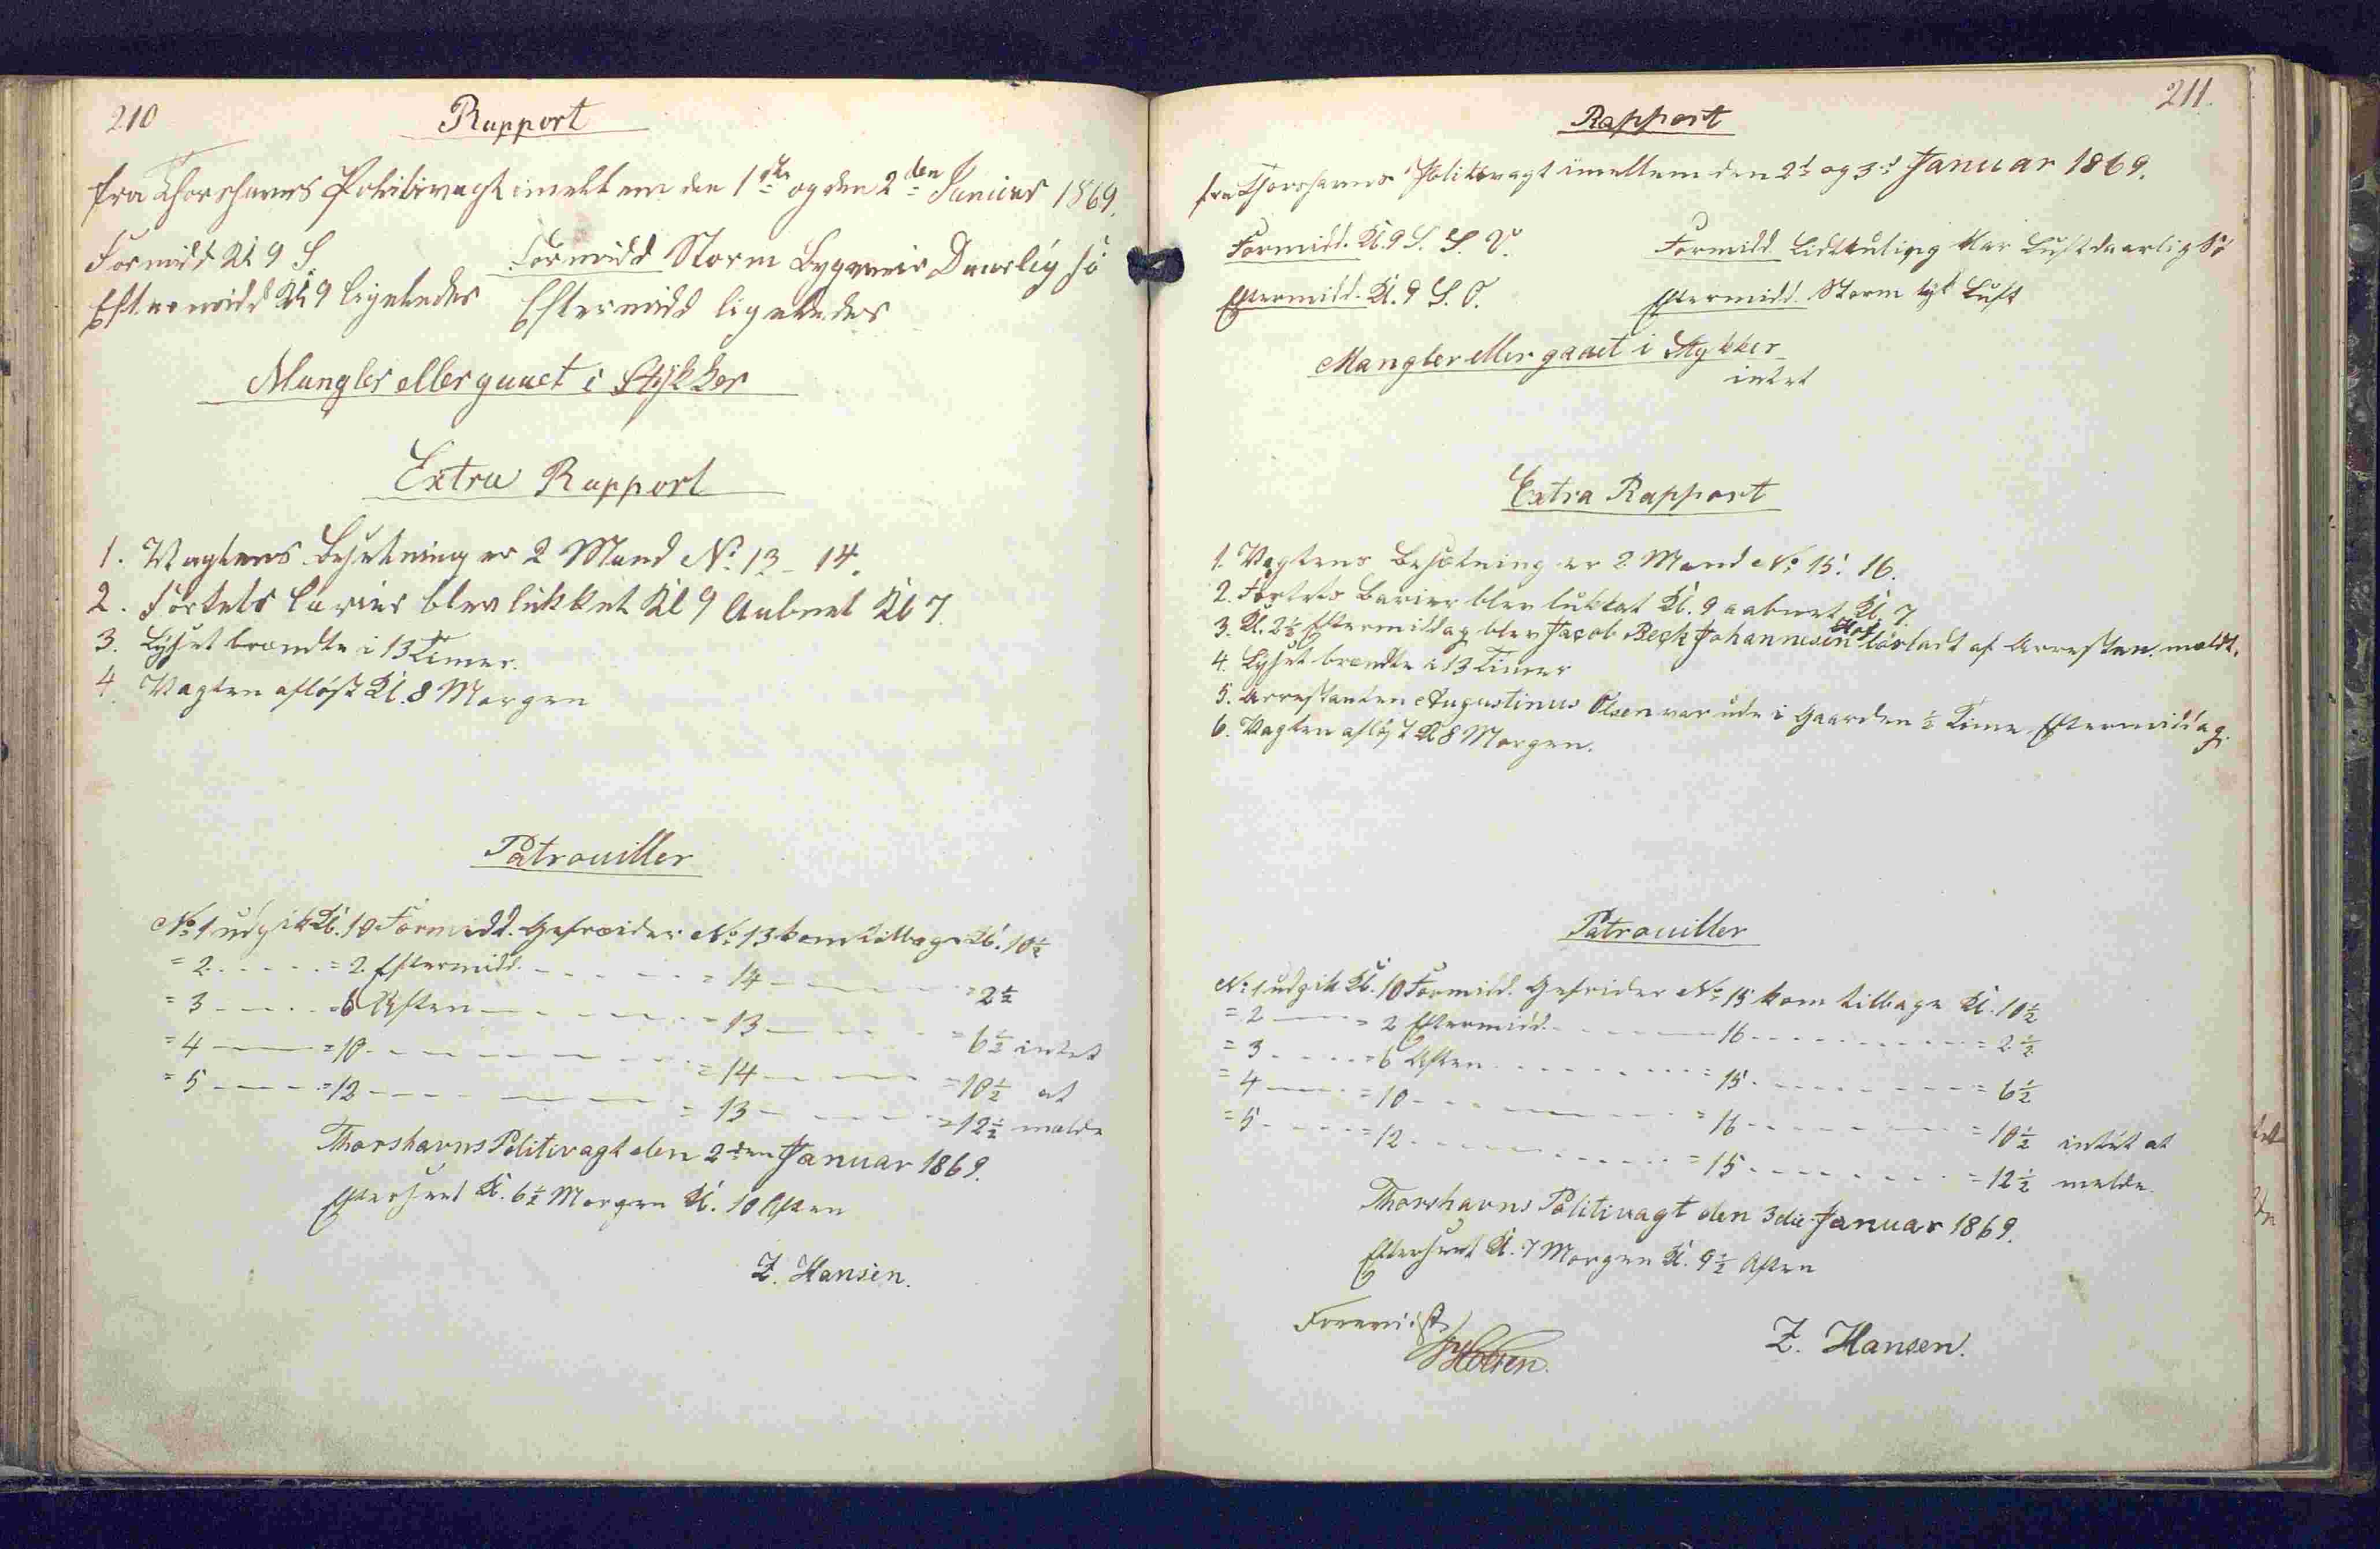 210
Rapport
fra Thorshavns Politivagt imellem den 1ste og den 2den Januar 1869.
Formidd Kl 9 S
Formidd Storm Bygeveir Daarlig Sö
Eftermidd Kl 9 ligeledes
Eftermidd ligeledes
Mangler eller gaaet i Stykker
Extra Rapport
1. Vagtens Besetning er 2 Mand No 13 - 14.
2. Fortets Barier blev lukket Kl 9 Aabnet Kl 7.
3. Lyset brændte i 13 Timer.
4. Vagten aflöst Kl. 8 Morgen
Patrouiller
No 1 udgik Kl. 10 Formidd. Gefreider No 13 kom tilbage Kl. 10½
= 2. = 2. Eftermidd. = 14 = 2½
= 3 = 6 Aften = 13 = 6½ intet
= 4 = 10 = 14 = 10½ at
= 5 = 12 = 13 = 12½ melde
Thorshavns Politivagt den 2den Januar 1869.
Efterseet Kl. 6½ Morgen Kl. 10 Aften
Z. Hansen.
211.
Rapport
fra Thorshavns Politivagt imellem den 2d og 3d Januar 1869.
Formidd. Kl. 9 S. S. V.
Formidd Lidt kuling klar Luft daarlig Sö
Eftermidd. Kl. 9 S. O.
Eftermidd. Storm tyk Luft
Mangler eller gaaet i Stykker
intet
Extra Rapport
1. Vagtens Besætning er 2 Mand No 15. 16.
2. Fortets Barier blev lukket Kl. 9 aabnet Kl. 7.
3. Kl. 2½ Eftermiddag blev Jacob Beck Johannesen lösladt af Arresten. meldt.
4. Lyset brændte i 13 Timer
5. Arrestanten Augustinus Olsen var ude i Gaarden ½ Time Eftermiddag.
6. Vagten aflöst Kl 8 Morgen.
Patrouiller
No 1 udgik Kl. 10 Formidd. Gefreider No 15 kom tilbage Kl. 10½
= 2 = 2 Eftermidd. 16 = 2½
= 3 = 6 Aften = 15 = 6½
= 4 = 10 = 16 = 10½ intet at
= 5 = 12 = 15 = 12½ melde.
Thorshavns Politivagt den 3die Januar 1869.
Efterseet Kl. 7 Morgen Kl. 9½ Aften
Forevist
Z. Hansen.